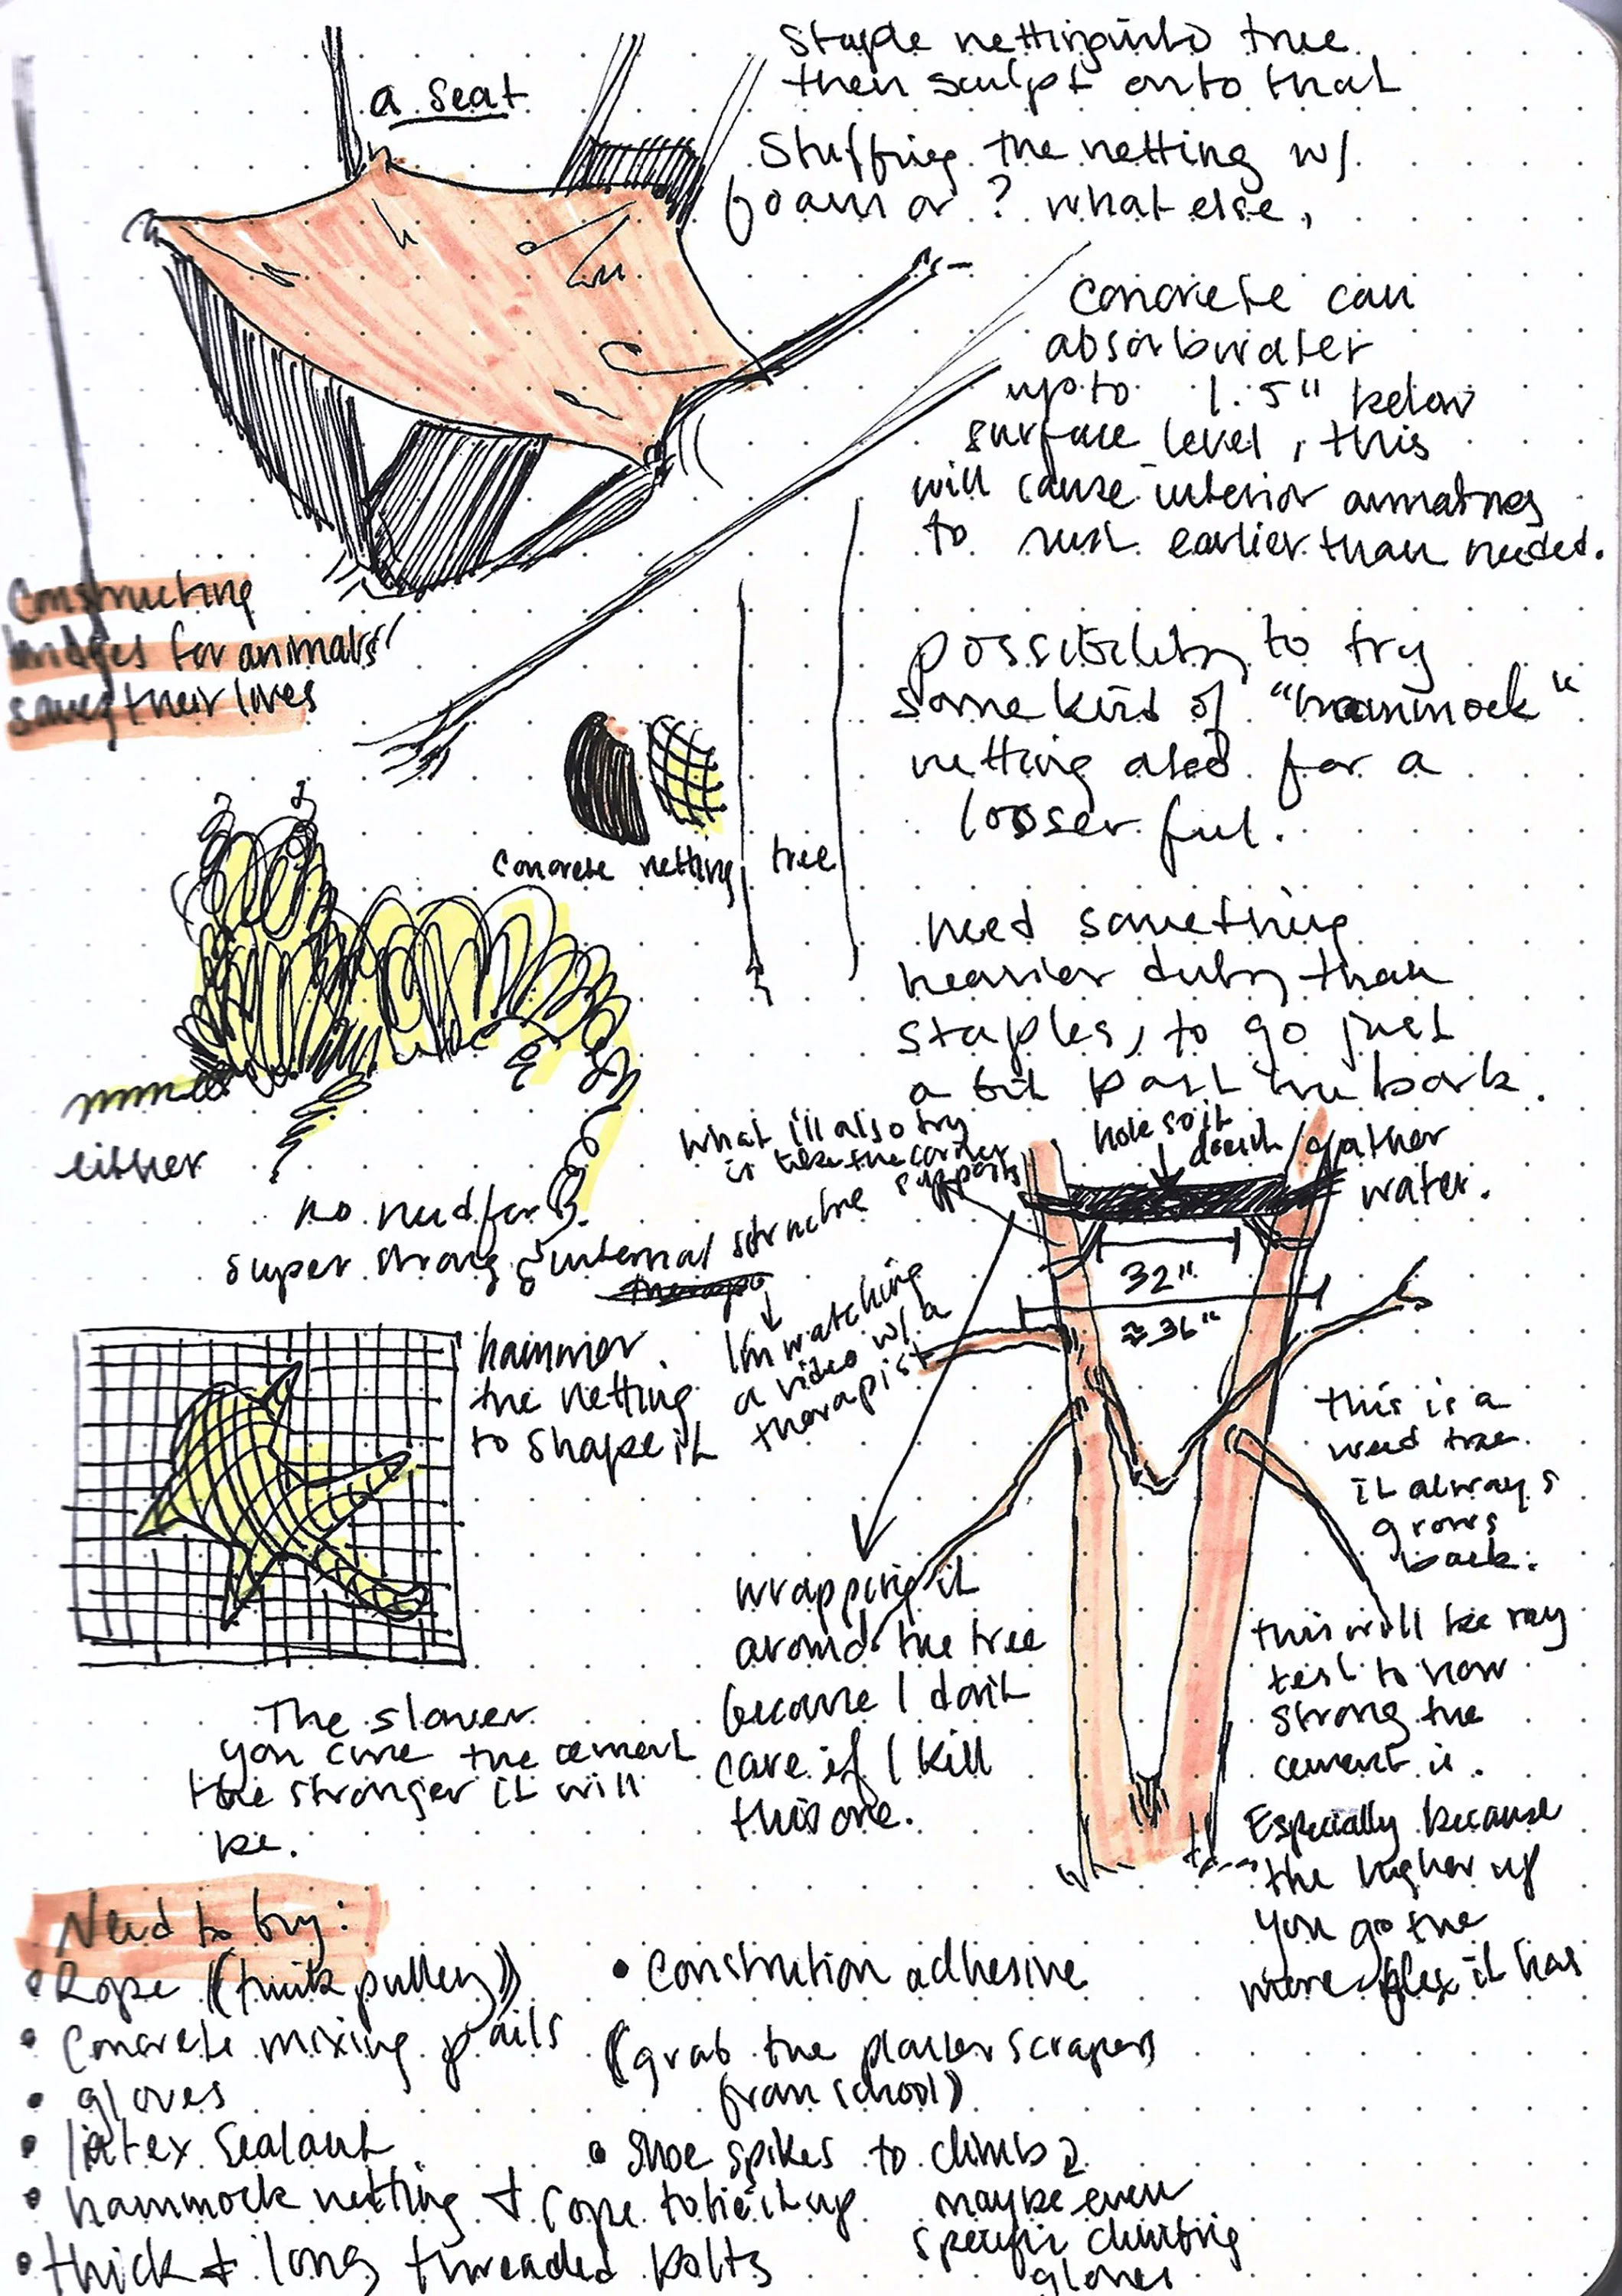 a seat
staple netting into tree
then sculpt onto that
Stuffing the netting w/
foam or ? what else,
concrete can
absorb water
up to 1.5" below
surface level, this
will cause interior armatures
to rust earlier than needed.
Constructing
bridges for animals
saves their lives
possibility to try
some kind of "hammock"
netting also for a
looser feel.
concrete netting tree
need something
heavier duty than
staples, to go just
a bit past the bark.
either
no need for
super strong internal structure
What i'll also try
is take the corner
supports
hole so it
doesn't gather
water.
32"
≈ 36"
I'm watching
a video w/ a
therapist
hammer
the netting
to shape it
this is a
weed tree
it always
grows
back.
wrapping it
around the tree
because I don't
care if I kill
this one.
this will be my
test to how
strong the
cement is.
Especially because
the higher up
you go the
more flex it has
The slower
you cure the cement
the stronger it will
be.
Need to buy:
• Rope ((think pulley))
• Concrete mixing pails
• gloves
• latex sealant
• hammock netting + rope to tie it up
• thick + long threaded bolts
• Constrution adhesive
(grab the plaster scrapers
from school)
• Shoe spikes to climb
maybe even
specific climbing
gloves